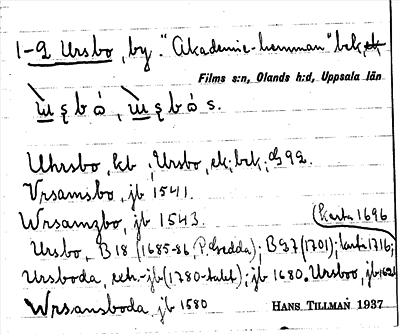 1-2 Ursbo, by. "Akademie-hemman" bek, ek
Films s:n, Olands h:d, Uppsala län
Uhrsbo, kb; Ursbo, ek; bek; G92.
Vrsamsbo, jb 1541.
Wrsamzbo, jb 1543. (karta 1696
Ursbo, B18 (1685-86, P. Gedda); B27 (1701); karta 1716;
Ursboda, eek.-jb (1780-talet); jb 1680. Ursboo, jb
Wrsansboda, jb 1580
HANS TILLMAN 1937